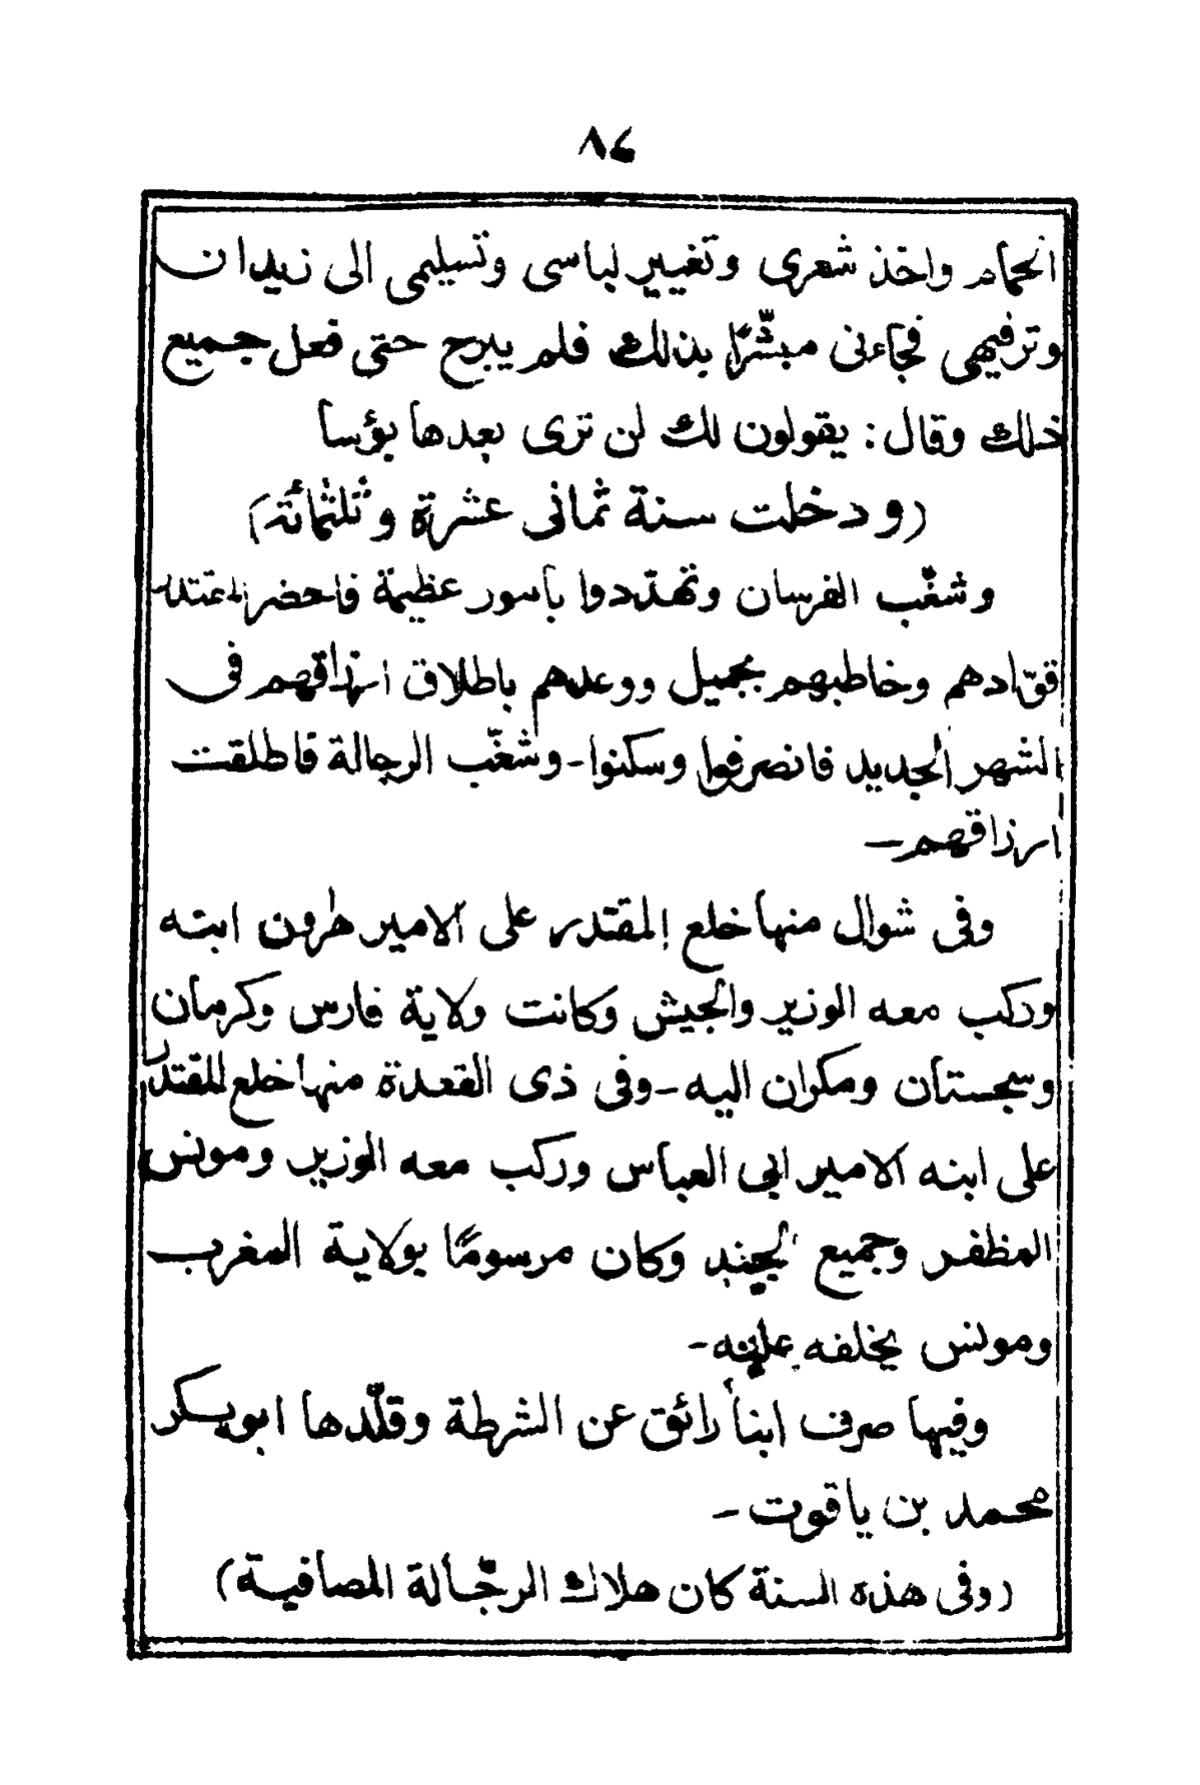 ٨٤
الحمام واخذ شعرى وتغيير لباسى وتسليمى الى زيدان
وترفيهى فجاءنى مبشّرًا بذلك فلم يبرح حتى فعل جميع
ذلك وقال: يقولون لك لن ترى بعدها بؤسا
(ودخلت سنة ثمانى عشرة وثلثمائة)
وشغّب الفرسان وتهدّدوا بأمور عظيمة فاحضر المقتدر
قوّادهم وخاطبهم بجميل ووعدهم باطلاق ارزاقهم فى
الشهر الجديد فانصرفوا وسكنوا-وشغّب الرجالة فاطلقت
ارزاقهم-
وفى شوال منها خلع المقتدر على الامير هٰرون ابنه
وركب معه الوزير والجيش وكانت ولاية فارس وكرمان
وسجستان ومكران اليه-وفى ذى القعدة منها خلع المقتدر
على ابنه الامير ابى العباس وركب معه الوزير ومونس
المظفر وجميع الجند وكان مرسومًا بولاية المغرب
ومونس يخلفه عليه-
وفيها صرف ابنا رائق عن الشرطة وقلّدها ابوبكر
محمد بن ياقوت-
(وفى هذه السنة كان هلاك الرجّالة المصافية)